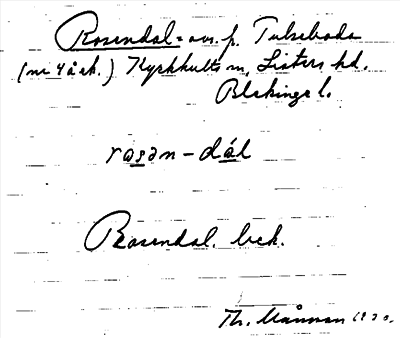 Rosendal = avs. p. Tulseboda
(nr 4 åsk.) Kyrkhults sn, Listers hd.
Blekinge l.
rosən-dál
Rosendal. bek.
Th. Månsson 1930.